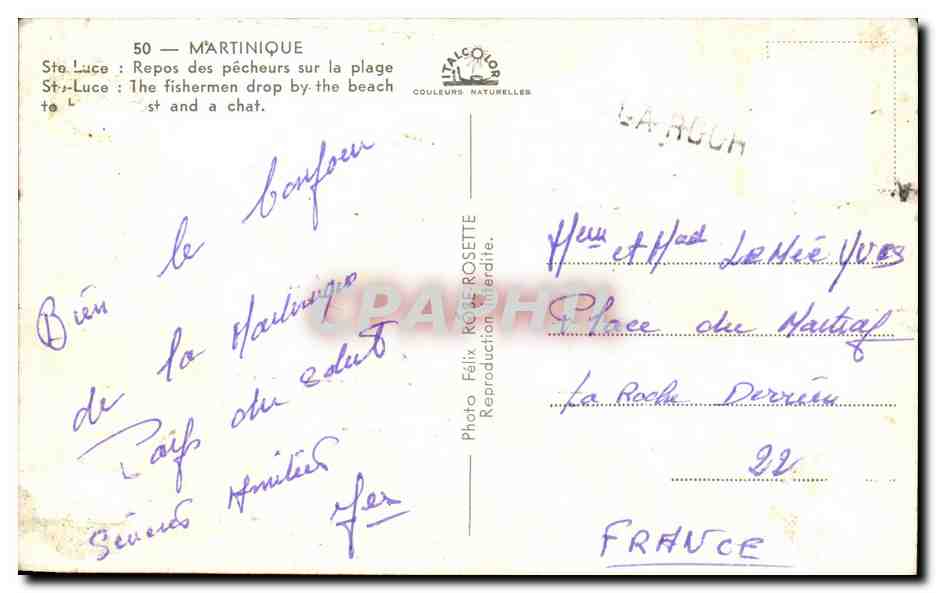 50 — MARTINIQUE
Ste Luce : Repos des pêcheurs sur la plage
Ste-Luce : The fishermen drop by the beach
to st and a chat.
ITALCOLOR
COULEURS NATURELLES
LA ROCH
Bien le bonjour
de la Martinique
Pays du soleil
Sincères Amitiés
Photo Félix ROSE-ROSETTE
Reproduction interdite.
CPAPHIL
et Mad LeMée Yves
Place du Martray
La Roche Derrien
22
FRANCE